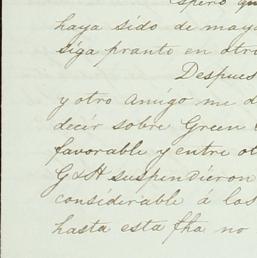 espero qu
haya sido de mayo
siga pronto en otro
Despues
y otro amigo me d
decir sobre Green
favorable y entre ot
G&H suspendieron
considerable á los
hasta esta fha no